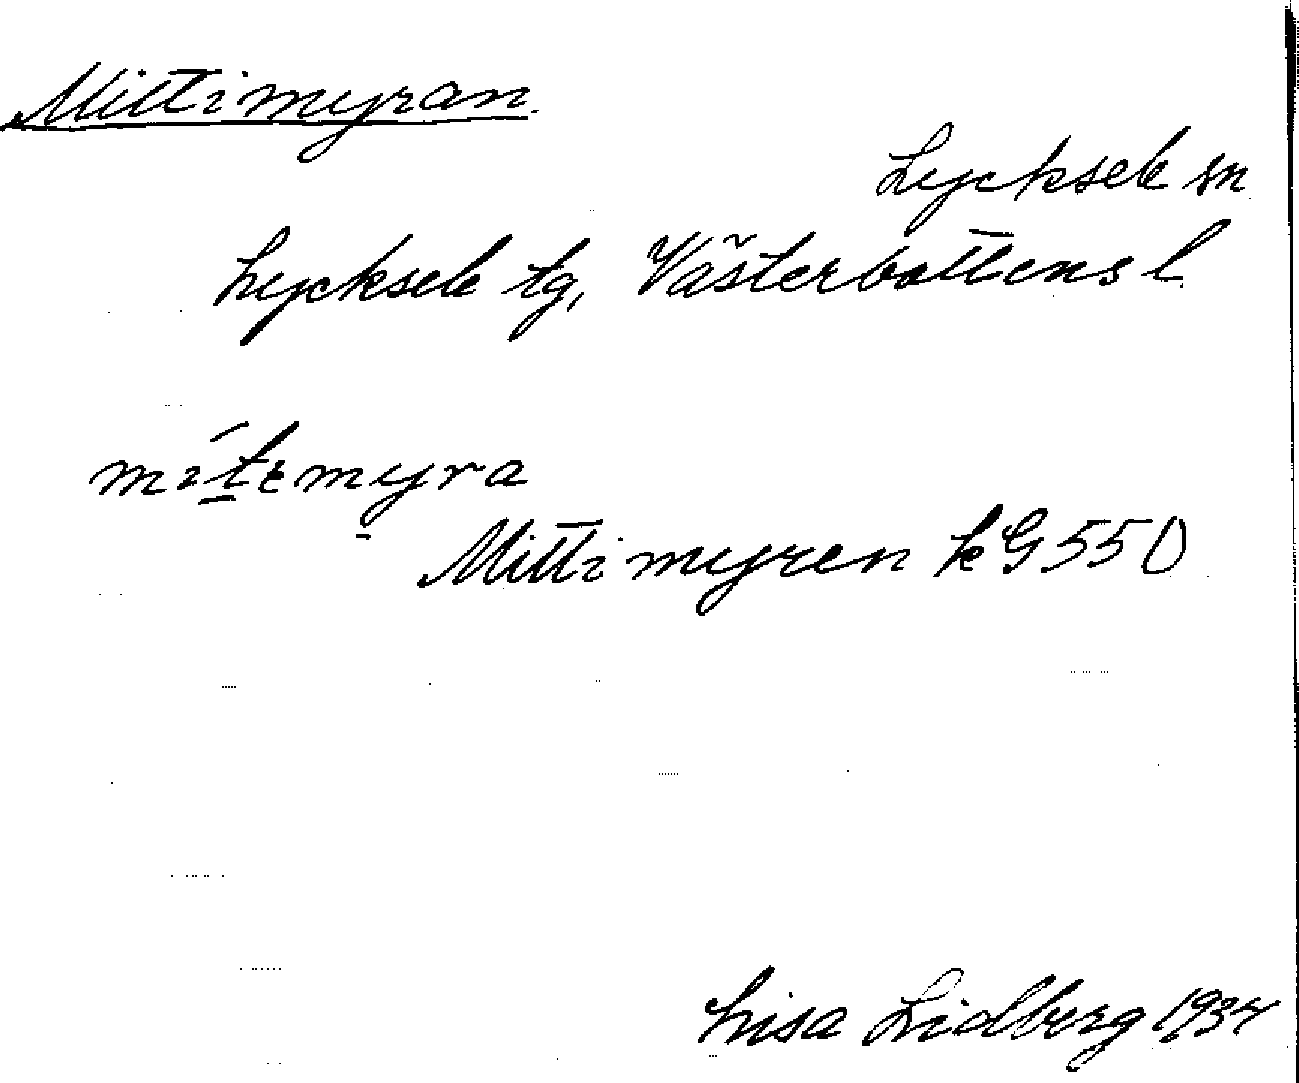 Mittimyran.
Lycksele sn
Lycksele tg, Västerbottens l.
mıt̠ɛmy̠ra
Mittimyren kG 55 D
Lisa Lidberg 1934